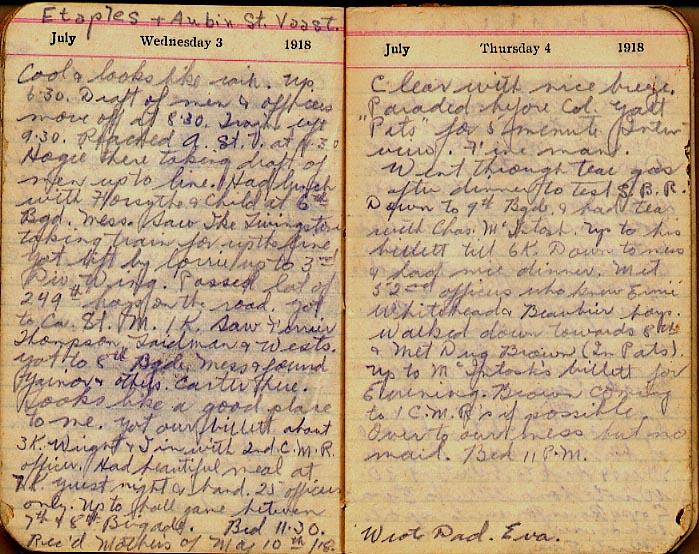 Etaples & Aubin St. Vaast.
July Wednesday 3 1918
Cool & looks like rain. Up
6:30. Draft of men & officers
move off at 8:30. Train left
9:30. Reached A. St. V. at 11.30
Hogie there taking draft of
men up to line. Had lunch
with Forsythe & Child at 6th
Bgd. Mess. Saw The Livingstone
taking train for up the line
Got left by lorrie up to 3rd
Div. Wing. Passed lot of
249th boys on the road. Got
to Ca. St. M. 1K. Saw
Thompson, Laidman & Wests.
Got to 8th Bgde. Mess & found
Gainor & others. Carter here.
Looks like a good place
to me. Got our billett about
3K. Wright & I in with 2nd C.M.R.
officer. Had beautiful meal at
7K. Guest night & band. 25 officers
only. Up to ball game between
7th & 8th Brigade. Bed 11.30.
Rec'd Mothers of May 10th/18.
July Thursday 4 1918
Clear with nice breeze.
Paraded before Col. Galt
"Pats" for 5 minute Inter-
view. Fine man.
Went through tear gas
after dinner to test S.B.R.
Down to 9th Bgde. & had tea
with Chas. McIntosh. Up to his
billett till 6K. Down to mess
& had nice dinner. Met
52nd officers who knew Ernie
Whitehead & Beaubier boys.
Walked down towards 8th
& Met Doug Brown (In Pats).
Up to McIntosh's billett for
Evening. Brown coming
to 1 C.M.R's if possible.
Over to our mess but no
maid. Bed 11 P.M.
Wrote Dad. Eva.